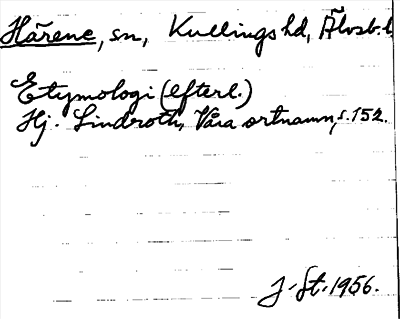 Härene, sn, Kullings hd, Älvsb. l
Etymologi (efterl.)
Hj. Lindroth, Våra ortnamn, s. 152.
J. St. 1956.